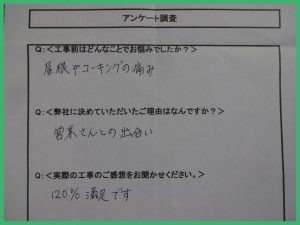 アンケート調査
Q:<工事前はどんなことでお悩みでしたか?>
屋根やコーキングの痛み
Q:<弊社に決めていただいたご理由はなんですか?>
営業さんとの出合い
Q:<実際の工事のご感想をお聞かせください。>
120% 満足です